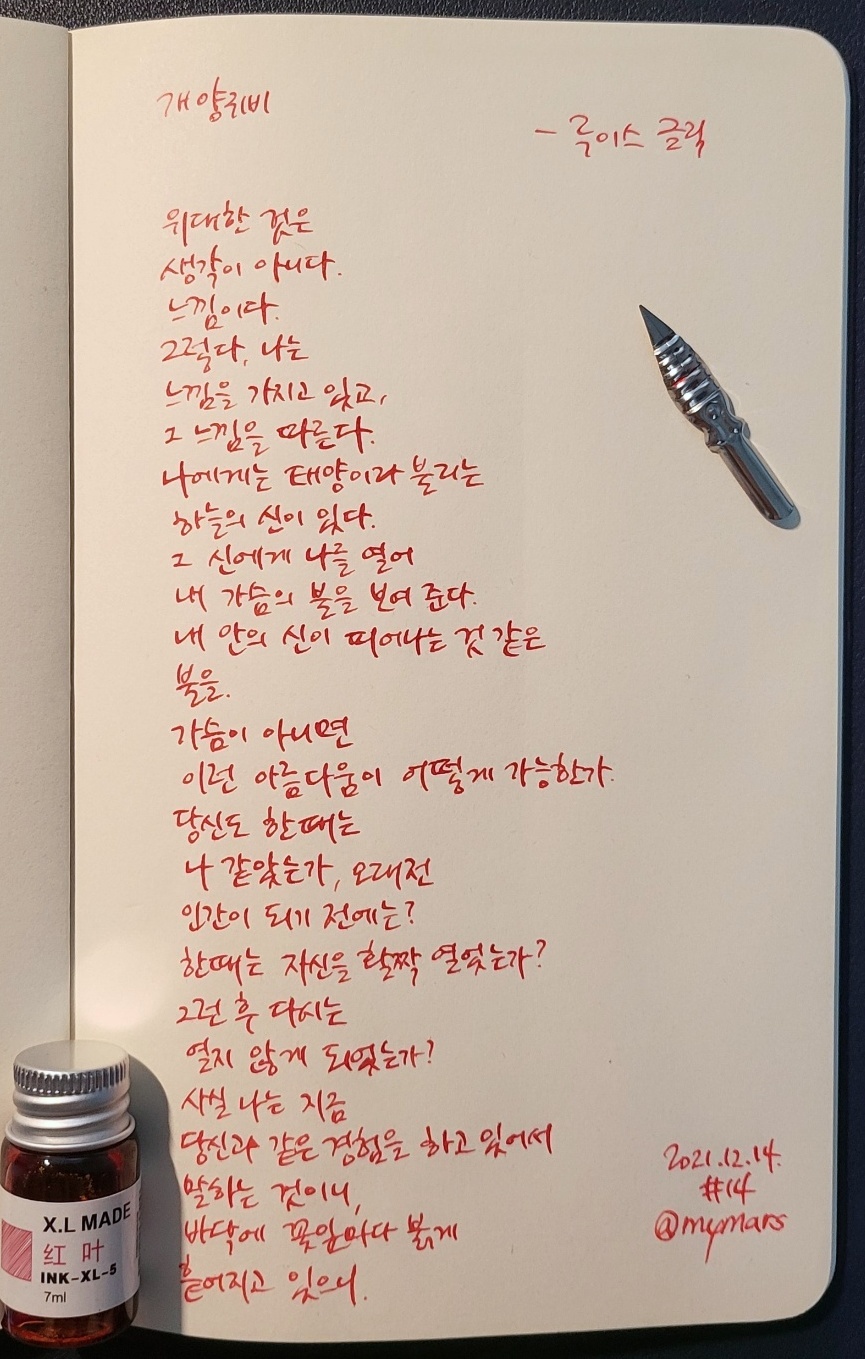 개양귀비
- 루이스 글릭
위대한 것은
생각이 아니다.
느낌이다.
그렇다, 나는
느낌을 가지고 있고,
그 느낌을 따른다.
나에게는 태양이라 불리는
하늘의 신이 있다.
그 신에게 나를 열어
내 가슴의 불을 보여 준다.
내 안의 신이 피어나는 것 같은
불을.
가슴이 아니면
이런 아름다움이 어떻게 가능한가.
당신도 한때는
나 같았는가, 오래전
인간이 되기 전에는?
한때는 자신을 활짝 열었는가?
그런 후 다시는
열지 않게 되었는가?
사실 나는 지금
당신과 같은 경험을 하고 있어서
말하는 것이니,
바닥에 꽃잎마다 붉게
흩어지고 있으니.
2021.12.14.
#14
@mymars
X.L MADE
红 叶
INK-XL-5
7ml